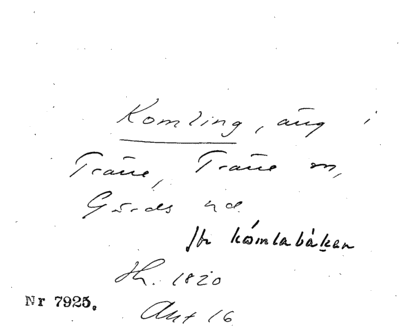 Komling, äng i
Träne, Träne sn,
Gärds hd
Jfr kómlabàken
Sk. 1820
Akt 16
Nr 7925.